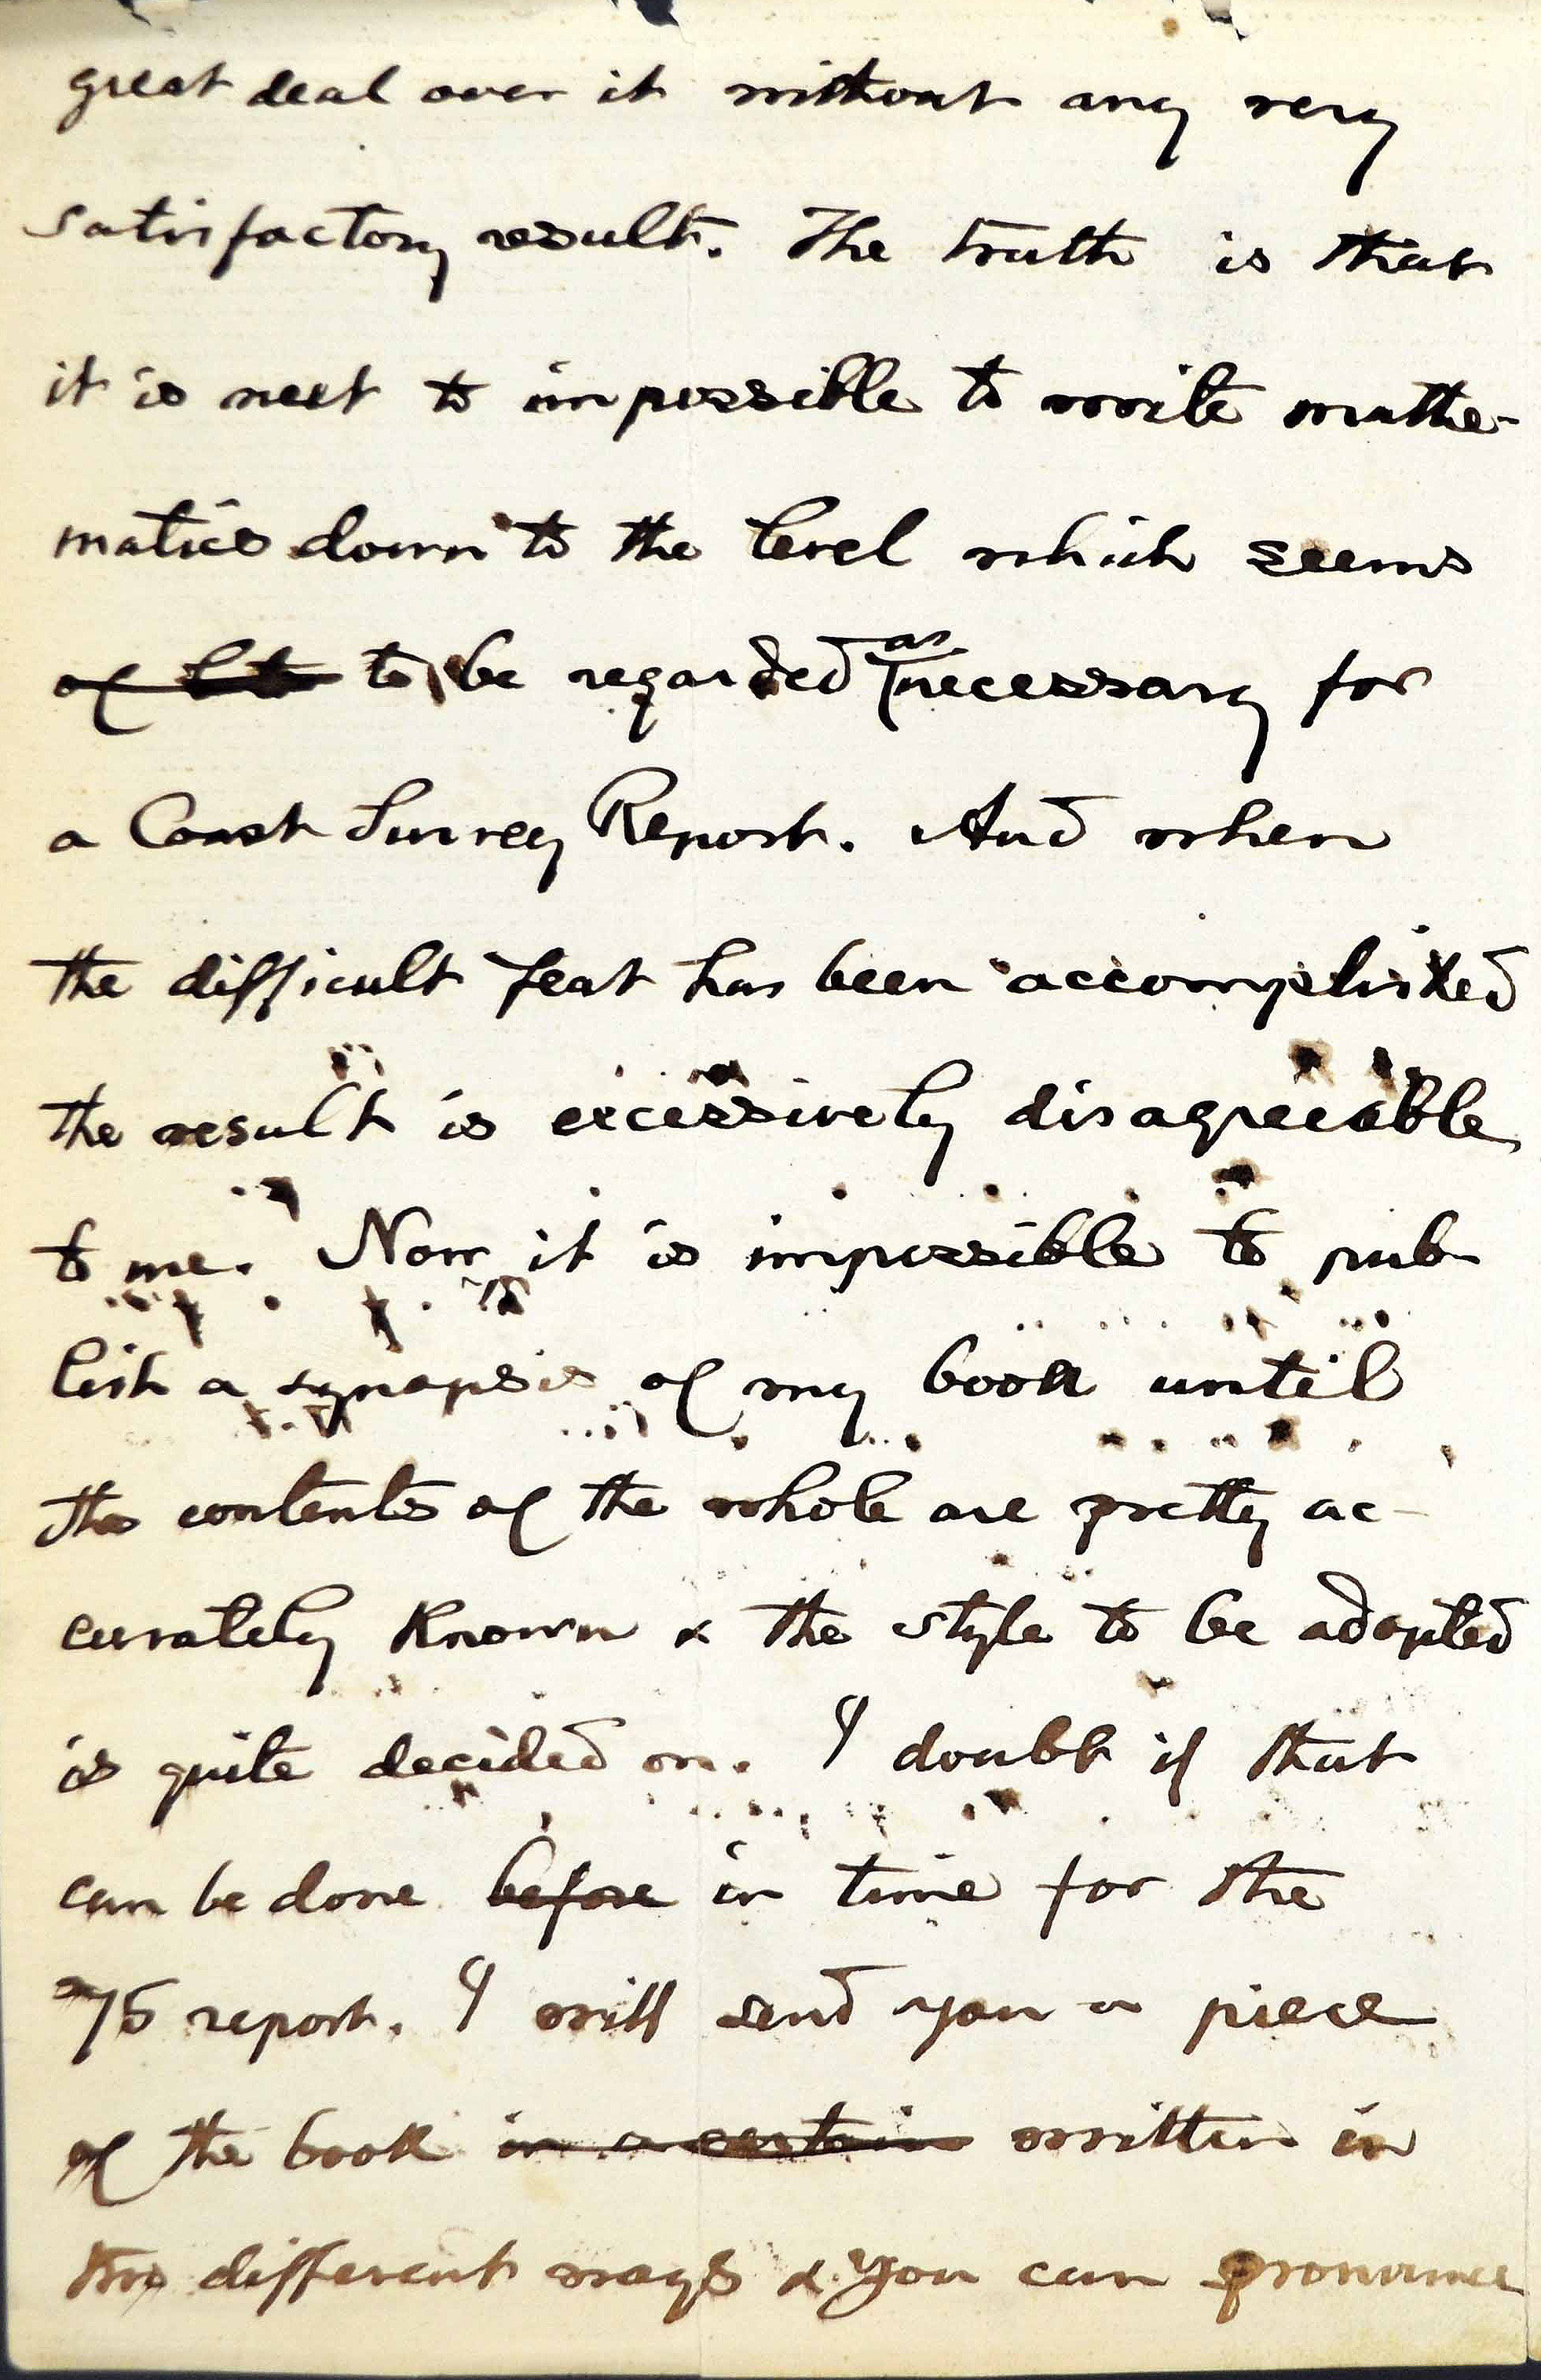 great deal over it without any very
satisfactory result. The truth is that
it is next to impossible to write mathe-
matics down to the level which seems
of to be regarded as necessary for
a Coast Survey Report. And when
the difficult feat has been accomplished
the result is excessively disagreeable
to me. Now it is impossible to pub
lish a synopsis of my book until
the contents of the whole are pretty ac-
curately known & the style to be adopted
is quite decided on. I doubt if that
can be done before in time for the
75 report. I will send you a piece
of the book in a certain written in
two different ways & you can pronounce